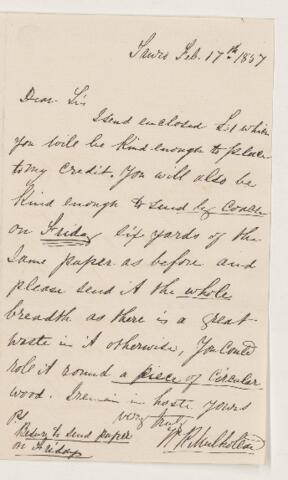 Feb. 17th 1857
Dear Sir
I send enclosed £1 which
you will be kind enough to place
to my credit, You will also be
kind enough to send by Coach
on Friday six yards of the
same paper as before and
please send it the whole
breadth as there is a great
waste in it otherwise, You could
role it round a piece of Circular
wood. I remain in haste yours
very truly
Wm
PS
to send paper
on Friday